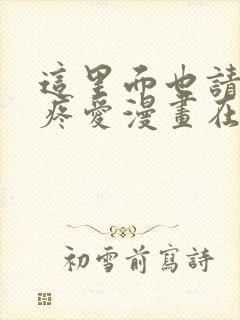 這里而也請
疼愛漫畫在
初雪前寫詩